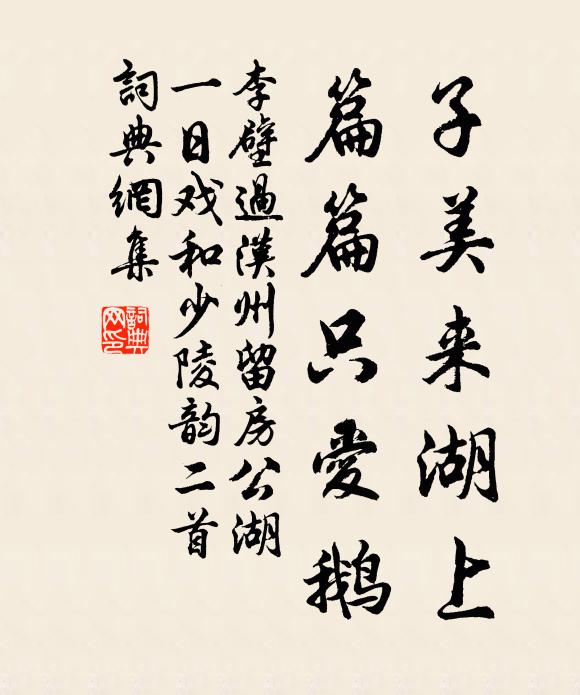 子美来湖上
篇篇只愛鵝
李壁過漢州留房公湖
一日戏和少陵韵二首
詞典網集
詞典
网印